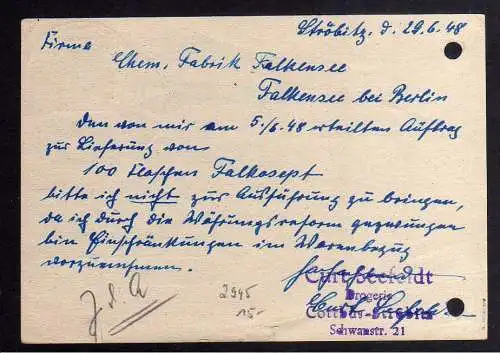 Ströbitz, d. 29.6.48
Firma
Chem. Fabrik Falkensee
Falkensee bei Berlin
Den von mir am 5./6.48 erteilten Auftrag
zur Lieferung von
100 Flaschen Falkosept
bitte ich nicht zur Ausführung zu bringen,
da ich durch die Währungsreform gezwungen
bin Einschränkungen im Warenbezug
vorzunehmen.
Hochachtend
Curt Seefeldt
Drogerie
Cottbus-Ströbitz
Schwanstr. 21
2945
15.-